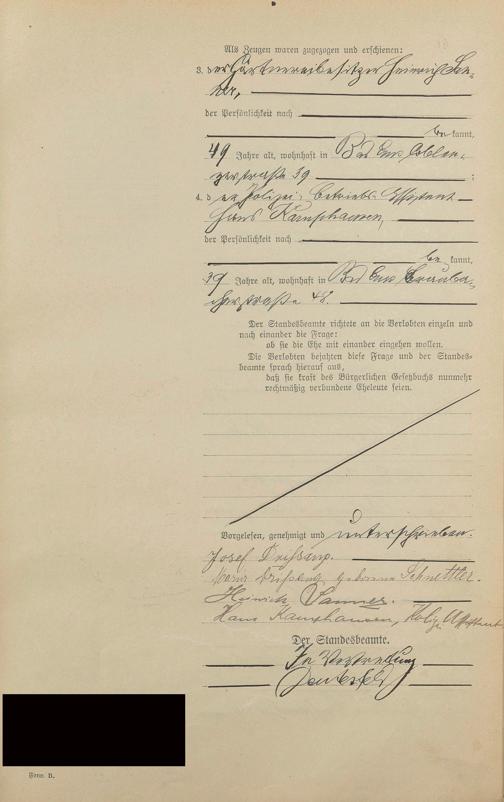 Als Zeugen waren zugezogen und erschienen:
3. der Gärtnereibesitzer Heinrich San-
ner,
der Persönlichkeit nach
be kannt,
49 Jahre alt, wohnhaft in Bad Ems Coblen-
zerstraße 39 ;
4. der Polizei-Betriebs-Assistent
Hans Kamphausen,
der Persönlichkeit nach
be kannt,
39 Jahre alt, wohnhaft in Bad Ems Brauba-
cherstraße 48.
Der Standesbeamte richtete an die Verlobten einzeln und
nach einander die Frage:
ob sie die Ehe mit einander eingehen wollen.
Die Verlobten bejahten diese Frage und der Standes-
beamte sprach hierauf aus,
daß sie kraft des Bürgerlichen Gesetzbuchs nunmehr
rechtmäßig verbundene Eheleute seien.
Vorgelesen, genehmigt und unterschrieben.
Josef
geborene Schnettler.
Heinrich Sanner.
Hans Kamphausen, Poliz. Assistent
Der Standesbeamte.
In Vertretung
Form. B.